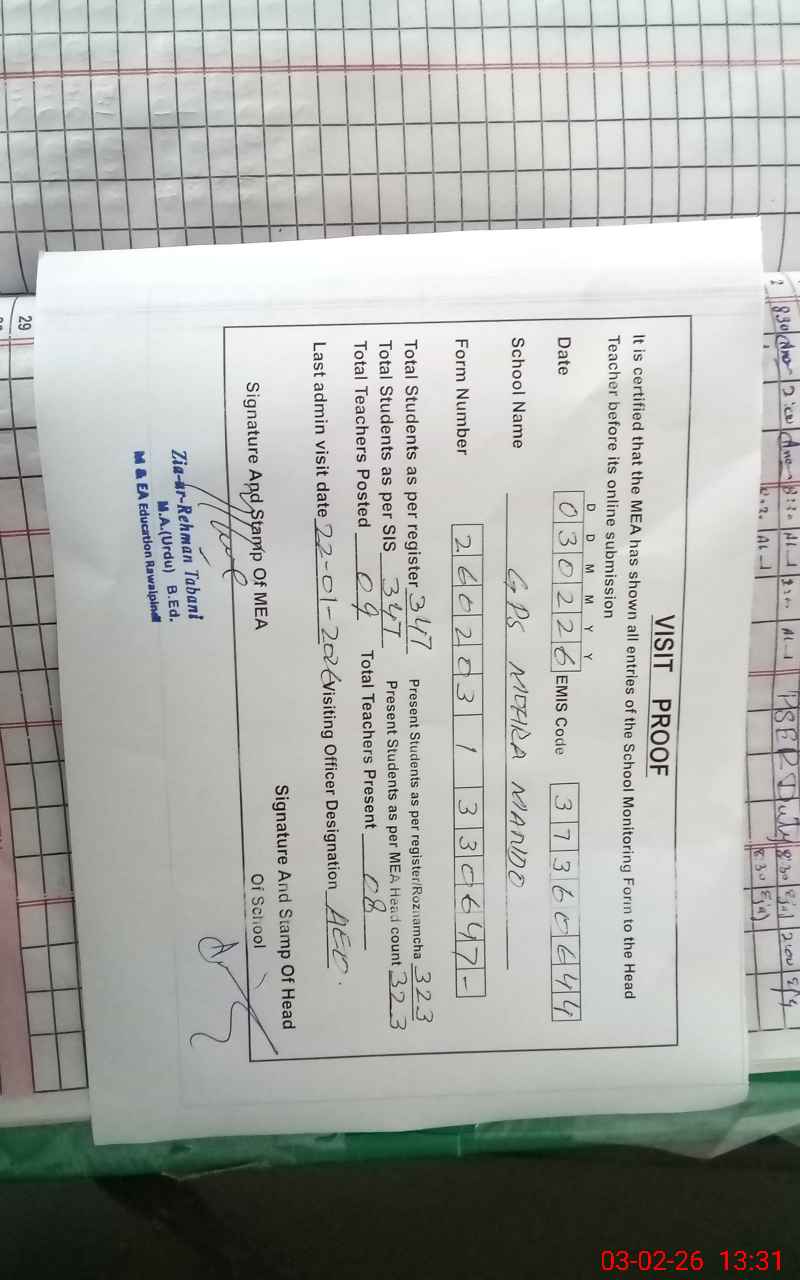 VISIT PROOF
It is certified that the MEA has shown all entries of the School Monitoring Form to the Head
Teacher before its online submission
D D M M Y Y
Date 030226 EMIS Code 37360644
School Name GPS MOHRA MANDO
Form Number 260203133 0647-
Total Students as per register 347 Present Students as per register/Roznamcha 323
Total Students as per SIS 347 Present Students as per MEA Head count 323
Total Teachers Posted 09 Total Teachers Present 08
Last admin visit date 22-01-2026 Visiting Officer Designation AEO.
Signature And Stamp Of MEA
Signature And Stamp Of Head
Of School
Zia-ur-Rehman Tabani
M.A.(Urdu) B.Ed.
M & EA Education Rawalpindi
29
8:30 2:00
PSER Duty 8:30 2:00
8:30
03-02-26 13:31